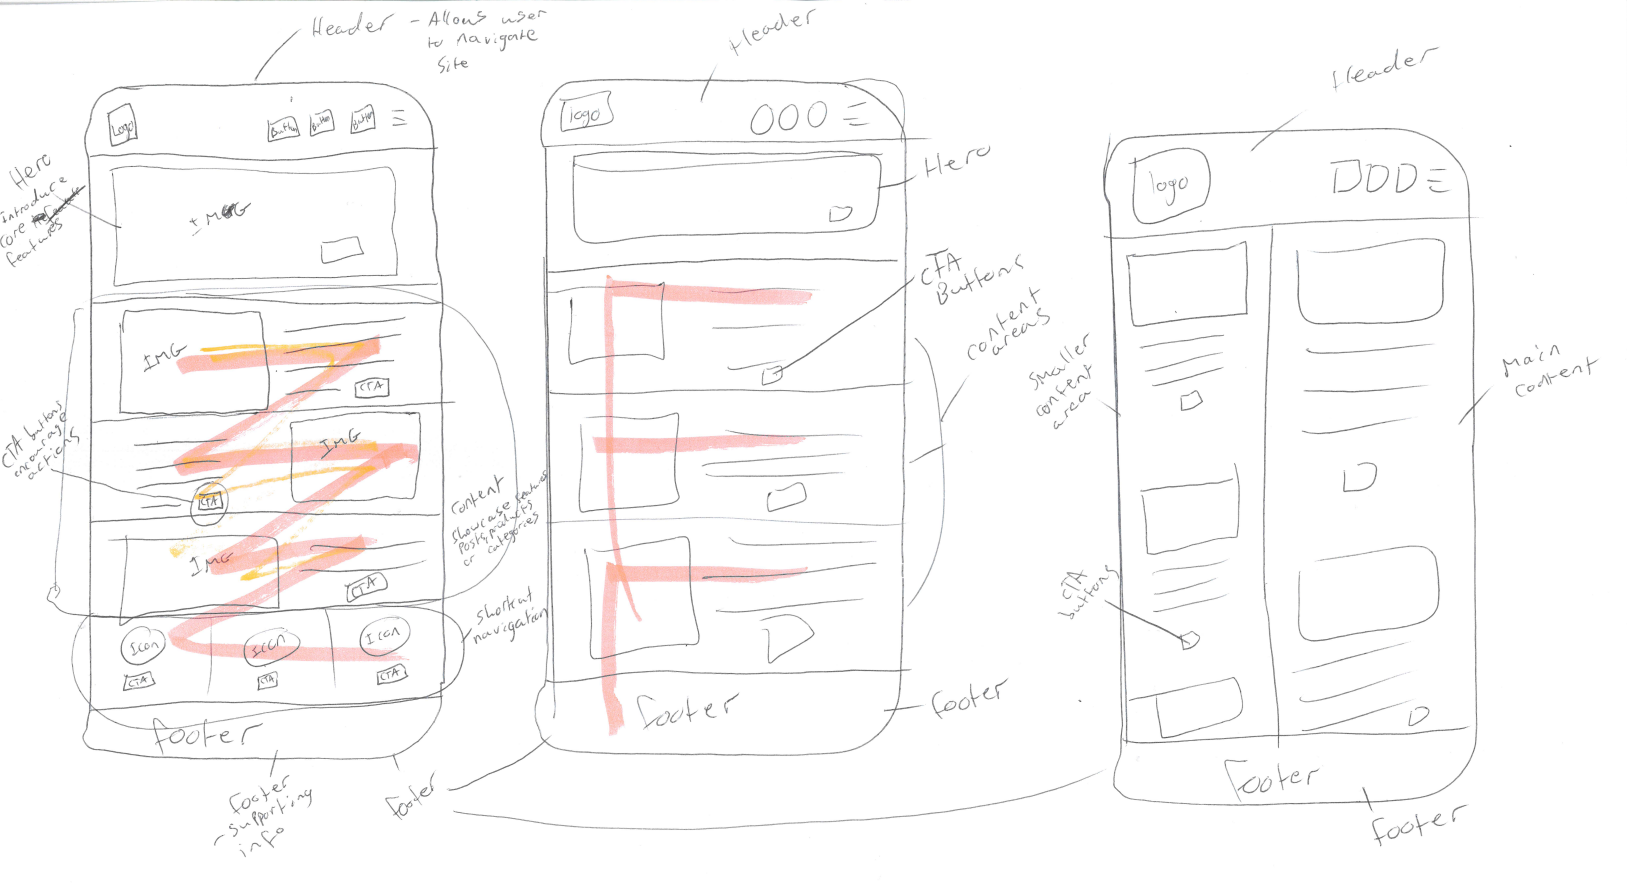 Header - Allows user
to navigate
site
Logo
Button
Button
Button
Hero
introduce
core
features
IMG
IMG
CTA
CTA buttons
encourage
actions
IMG
CTA
content
showcase features
posts, products
or categories
IMG
CTA
Icon
Icon
Icon
CTA
CTA
CTA
shortcut
navigation
footer
footer
- supporting
info
footer
Header
logo
Hero
CTA
Buttons
content
areas
footer
footer
Header
logo
smaller
content
area
Main
content
CTA
buttons
footer
footer